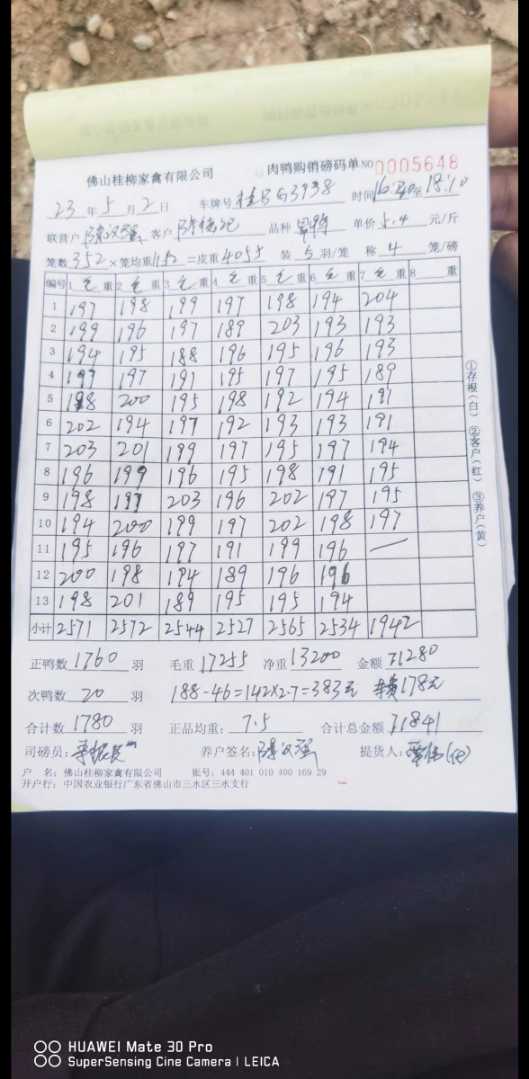 佛山桂柳家禽有限公司 肉鸭购销磅码单 NO 0005648
23 年 5 月 2 日 车牌号 桂 G3938 时间 16:40 至 18:10
联营户 客户 品种 单价 5.4 元/斤
笼数 352 × 笼均重 11.52 = 皮重 4055 装 5 羽/笼 称 4 笼/磅
编号 1 毛 重 2 毛 重 3 毛 重 4 毛 重 5 毛 重 6 毛 重 7 毛 重 8 重
1 197 198 199 197 198 194 204
2 199 196 197 189 203 193 193
3 194 195 188 196 195 196 193
4 197 197 191 195 197 195 189
5 198 200 195 198 192 194 191
6 202 194 197 192 193 193 191
7 203 201 199 197 195 197 194
8 196 199 196 195 198 191 195
9 198 197 203 196 202 197 195
10 194 200 199 197 202 198 197
11 195 196 197 191 199 196 —
12 200 198 194 189 196 196
13 198 201 189 195 195 194
小计 2571 2572 2544 2527 2565 2534 1942
正鸭数 1760 羽 毛重 17255 净重 13200 金额 71280
次鸭数 20 羽 188-46=142×2.7=383元 178元
合计数 1780 羽 正品均重: 7.5 合计总金额 71841
司磅员: 养户签名: 提货人:
户 名: 佛山桂柳家禽有限公司 账号: 444 401 010 400 169 29
开户行: 中国农业银行广东省佛山市三水区三水支行
①存根(白) ②客户(红) ③养户(黄)
HUAWEI Mate 30 Pro
SuperSensing Cine Camera | LEICA